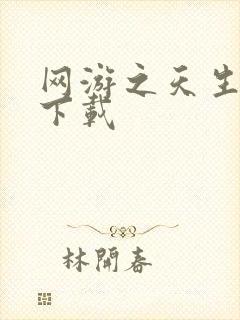 网游之天生
下载
林開春